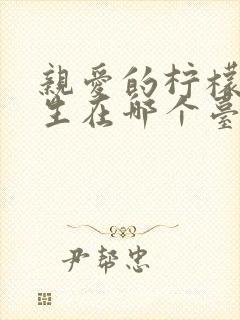 親愛的柠檬
生在哪个臺
尹帮忠